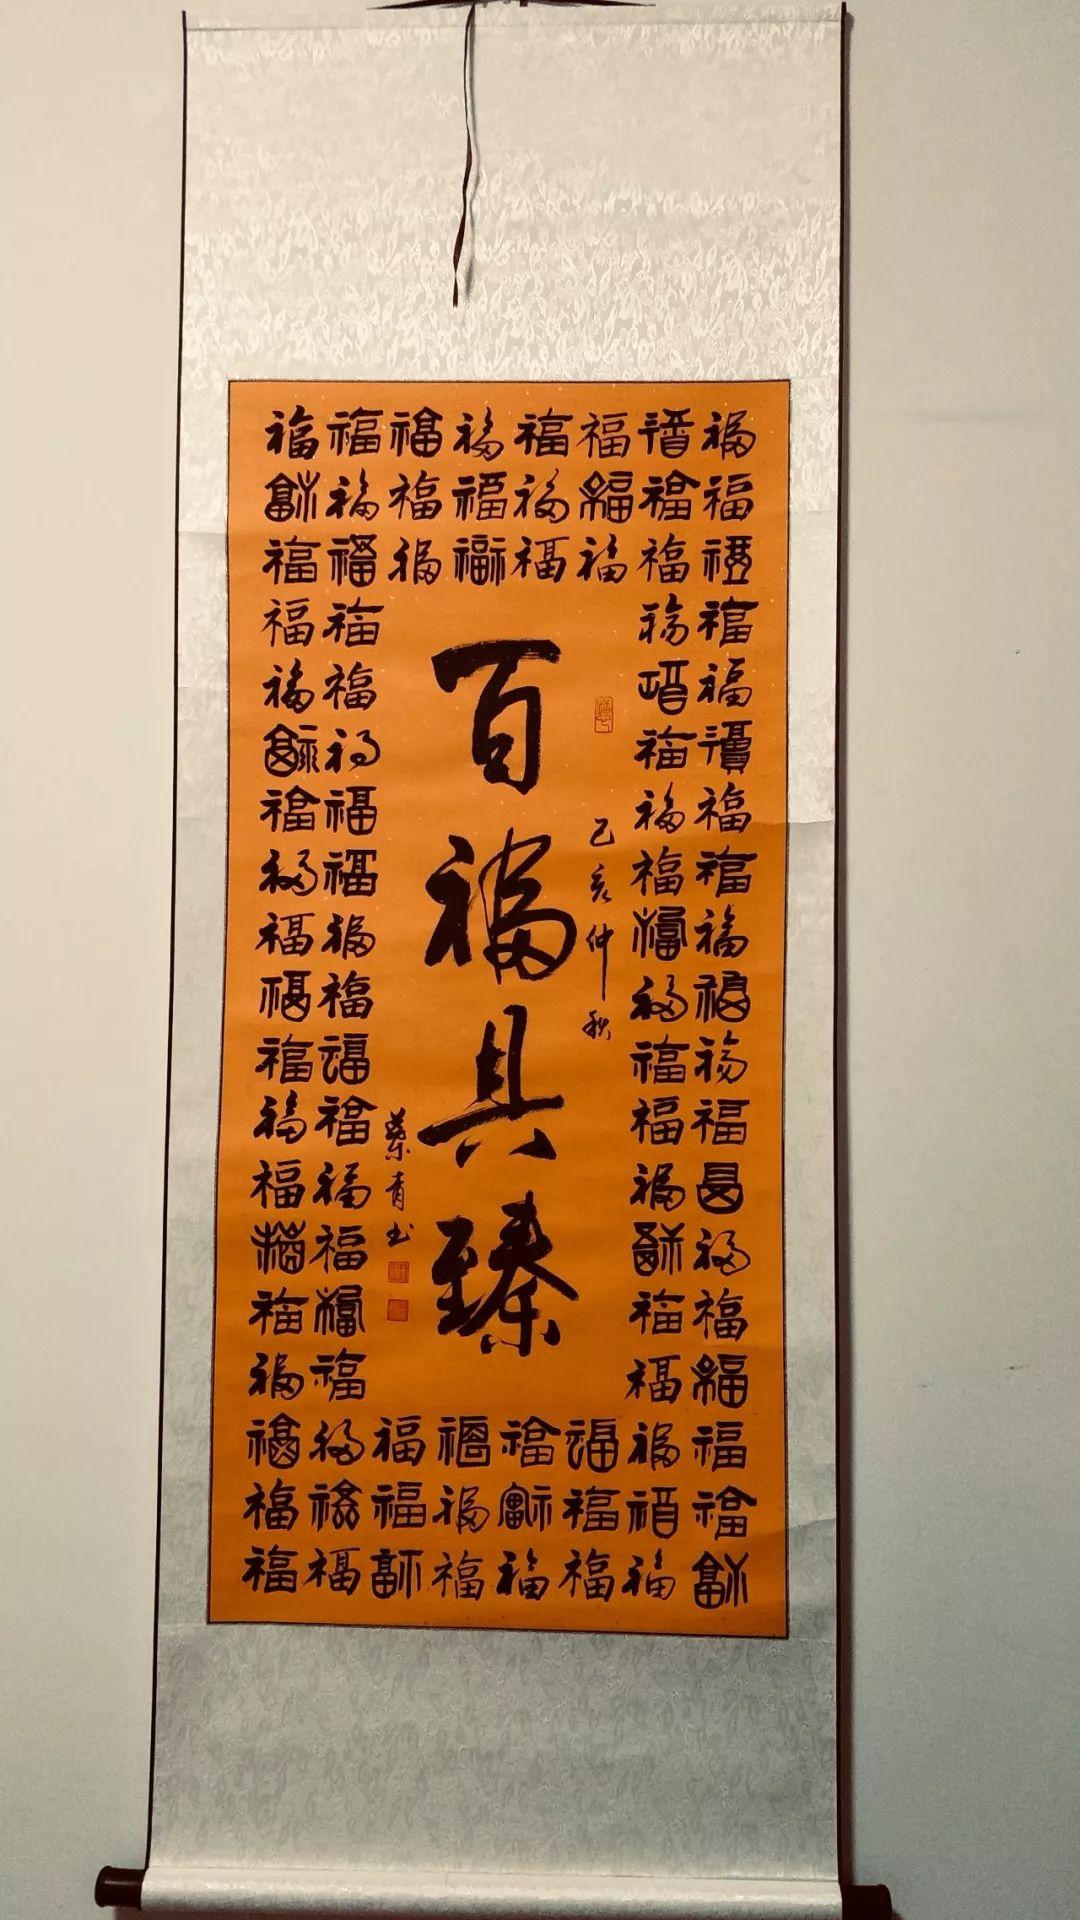 福福福福福福福福
福福福福福福福福
福福福福福福福福
福福 福福
福福 福福
福福 福福
福福 福福
福福 福福
福福 福福
福福 福福
福福 福福
福福 福福
福福 福福
福福 福福
福福 福福
福福 福福
福福福福福福福福
福福福福福福福福
福福福福福福福福
己亥仲秋
百福具臻
蔡青书